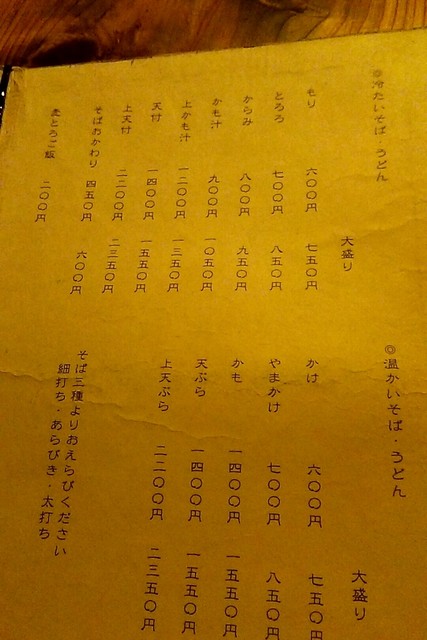 ◎冷たいそば・うどん
大盛り
もり 六〇〇円 七五〇円
とろろ 七〇〇円 八五〇円
からみ 八〇〇円 九五〇円
かも汁 九〇〇円 一〇五〇円
上かも汁 一二〇〇円 一三五〇円
天付 一四〇〇円 一五五〇円
上天付 二二〇〇円 二三五〇円
そばおかわり 四五〇円 六〇〇円
麦とろご飯 二〇〇円
◎温かいそば・うどん
大盛り
かけ 六〇〇円 七五〇円
やまかけ 七〇〇円 八五〇円
かも 一四〇〇円 一五五〇円
天ぷら 一四〇〇円 一五五〇円
上天ぷら 二二〇〇円 二三五〇円
そば三種よりおえらびください
細打ち・あらびき・太打ち